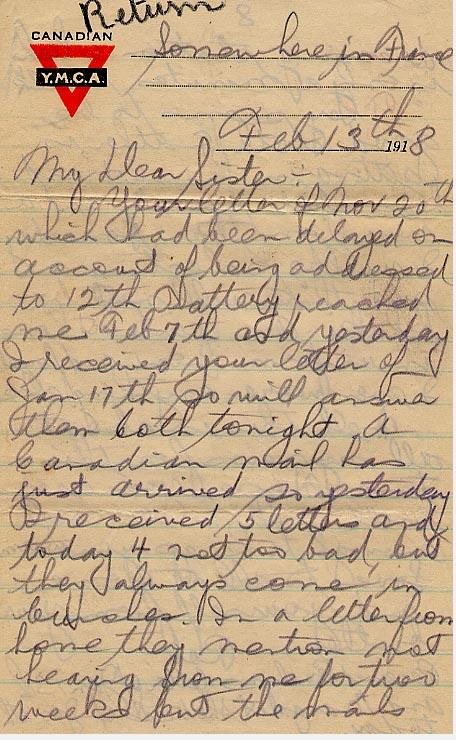 Return
CANADIAN
Y.M.C.A.
Somewhere in France
Feb 13th 1918
My Dear Sister:-
Your letter of Nov 20th
which had been delayed on
account of being addressed
to 12th Battery reached
me Feb 7th and yesterday
I received your letter of
Jan 17th so will answer
them both tonight. A
Canadian mail has
just arrived so yesterday
I received 5 letters and
today 4 not too bad, but
they always come in
bunches. In a letter from
home they mention not
hearing from me for two
weeks but the mails